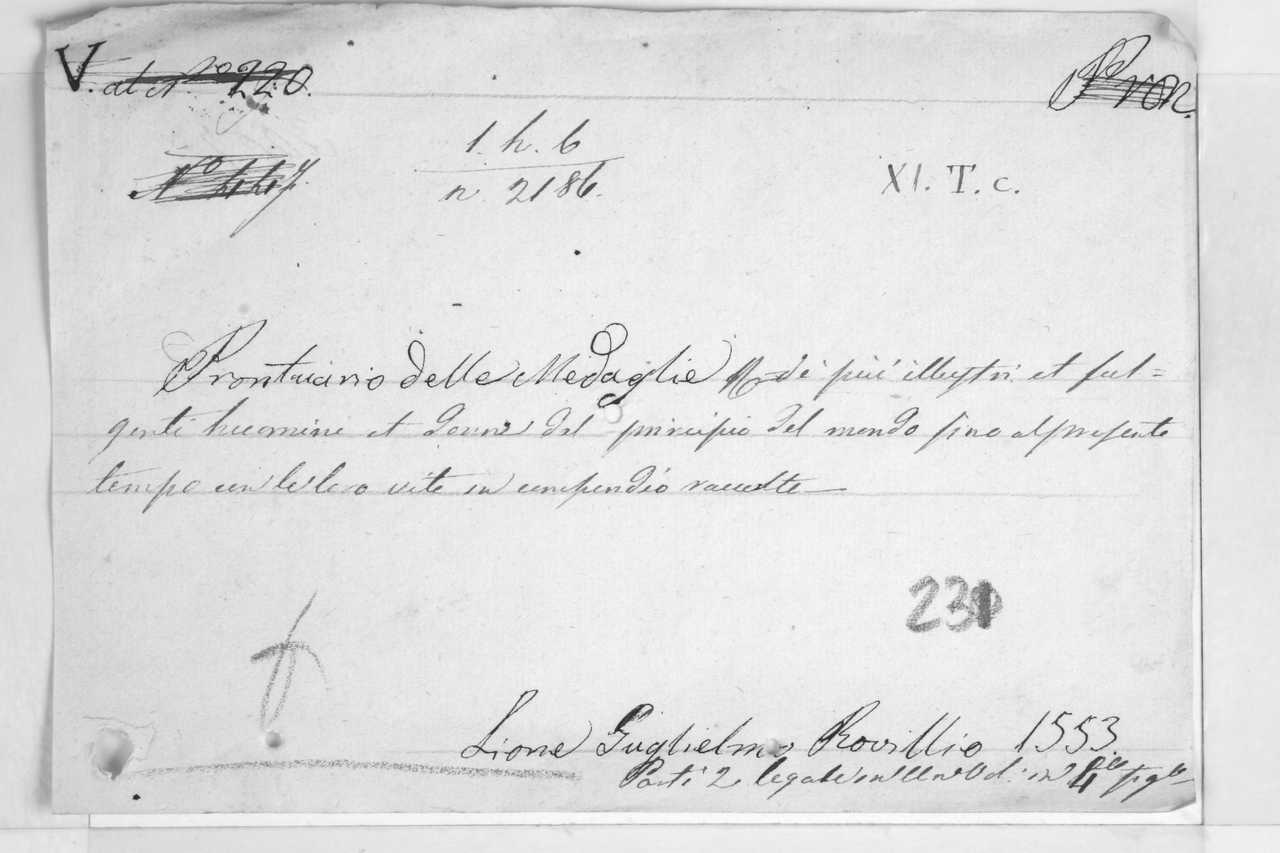 V. al N.º 220.
Pron.
Nº 447
1. h. 6
n. 2186.
XI. T. c.
Prontuario delle Medaglie de' piu illustri et ful=
genti huomini et donne dal principio del mondo sino al presente
tempo con le loro vite in compendio raccolte
231
Lione Guglielmo Rovillio 1553.
Parti 2 legate in un vol. in 4